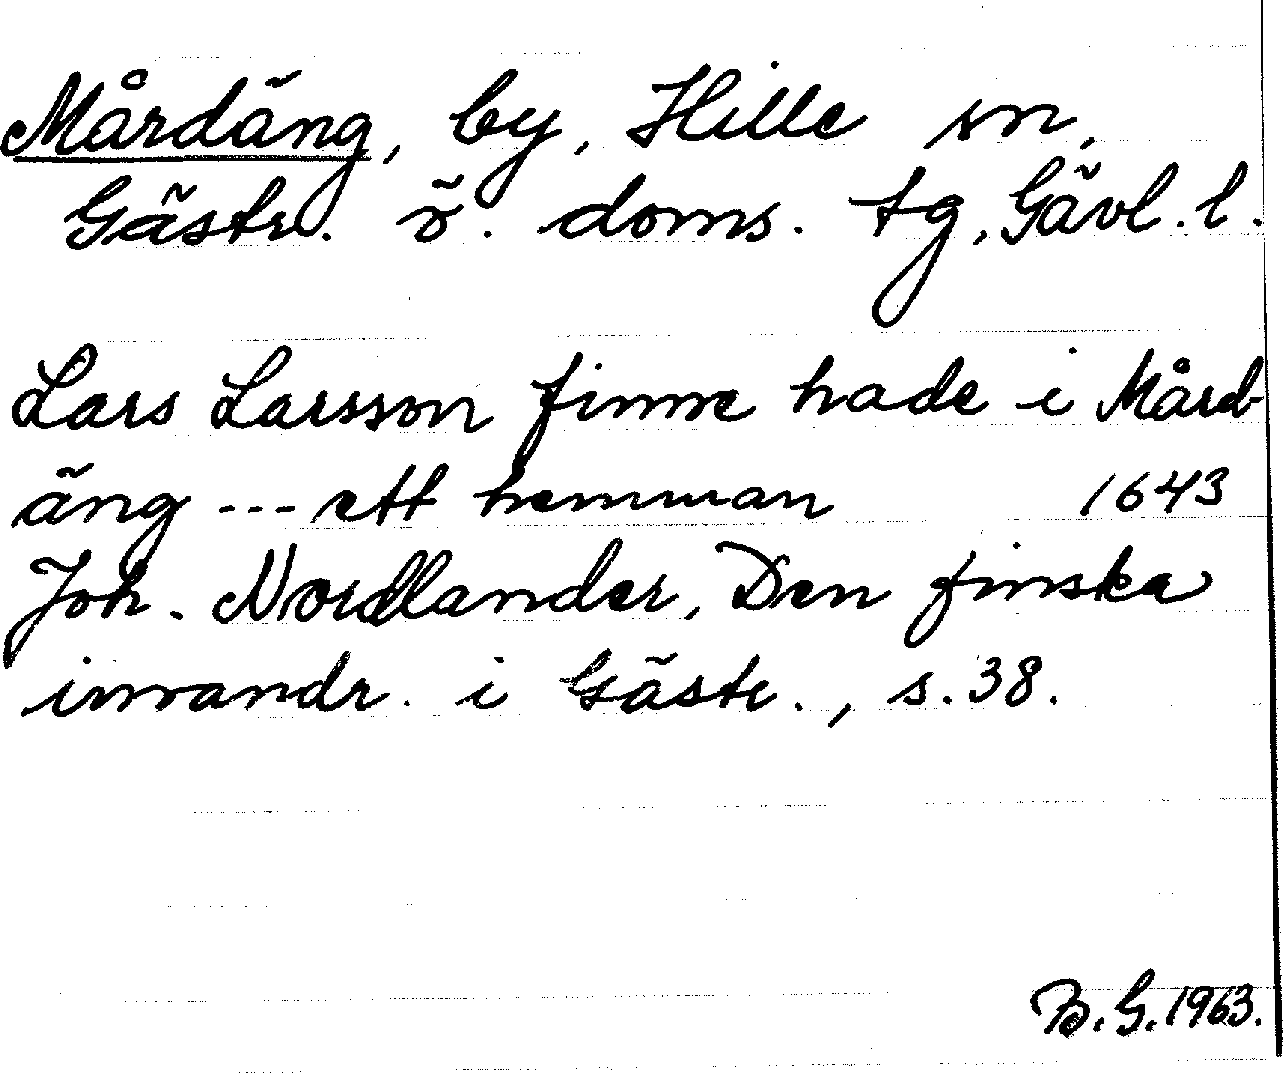 Mårdäng, by, Hille sn,
Gästr. ö. doms. tg, Gävl. l.
Lars Larsson finne hade i Mård-
äng --- ett hemman 1643
Joh. Nordlander, Den finska
invandr. i Gästr., s. 38.
B. G. 1963.